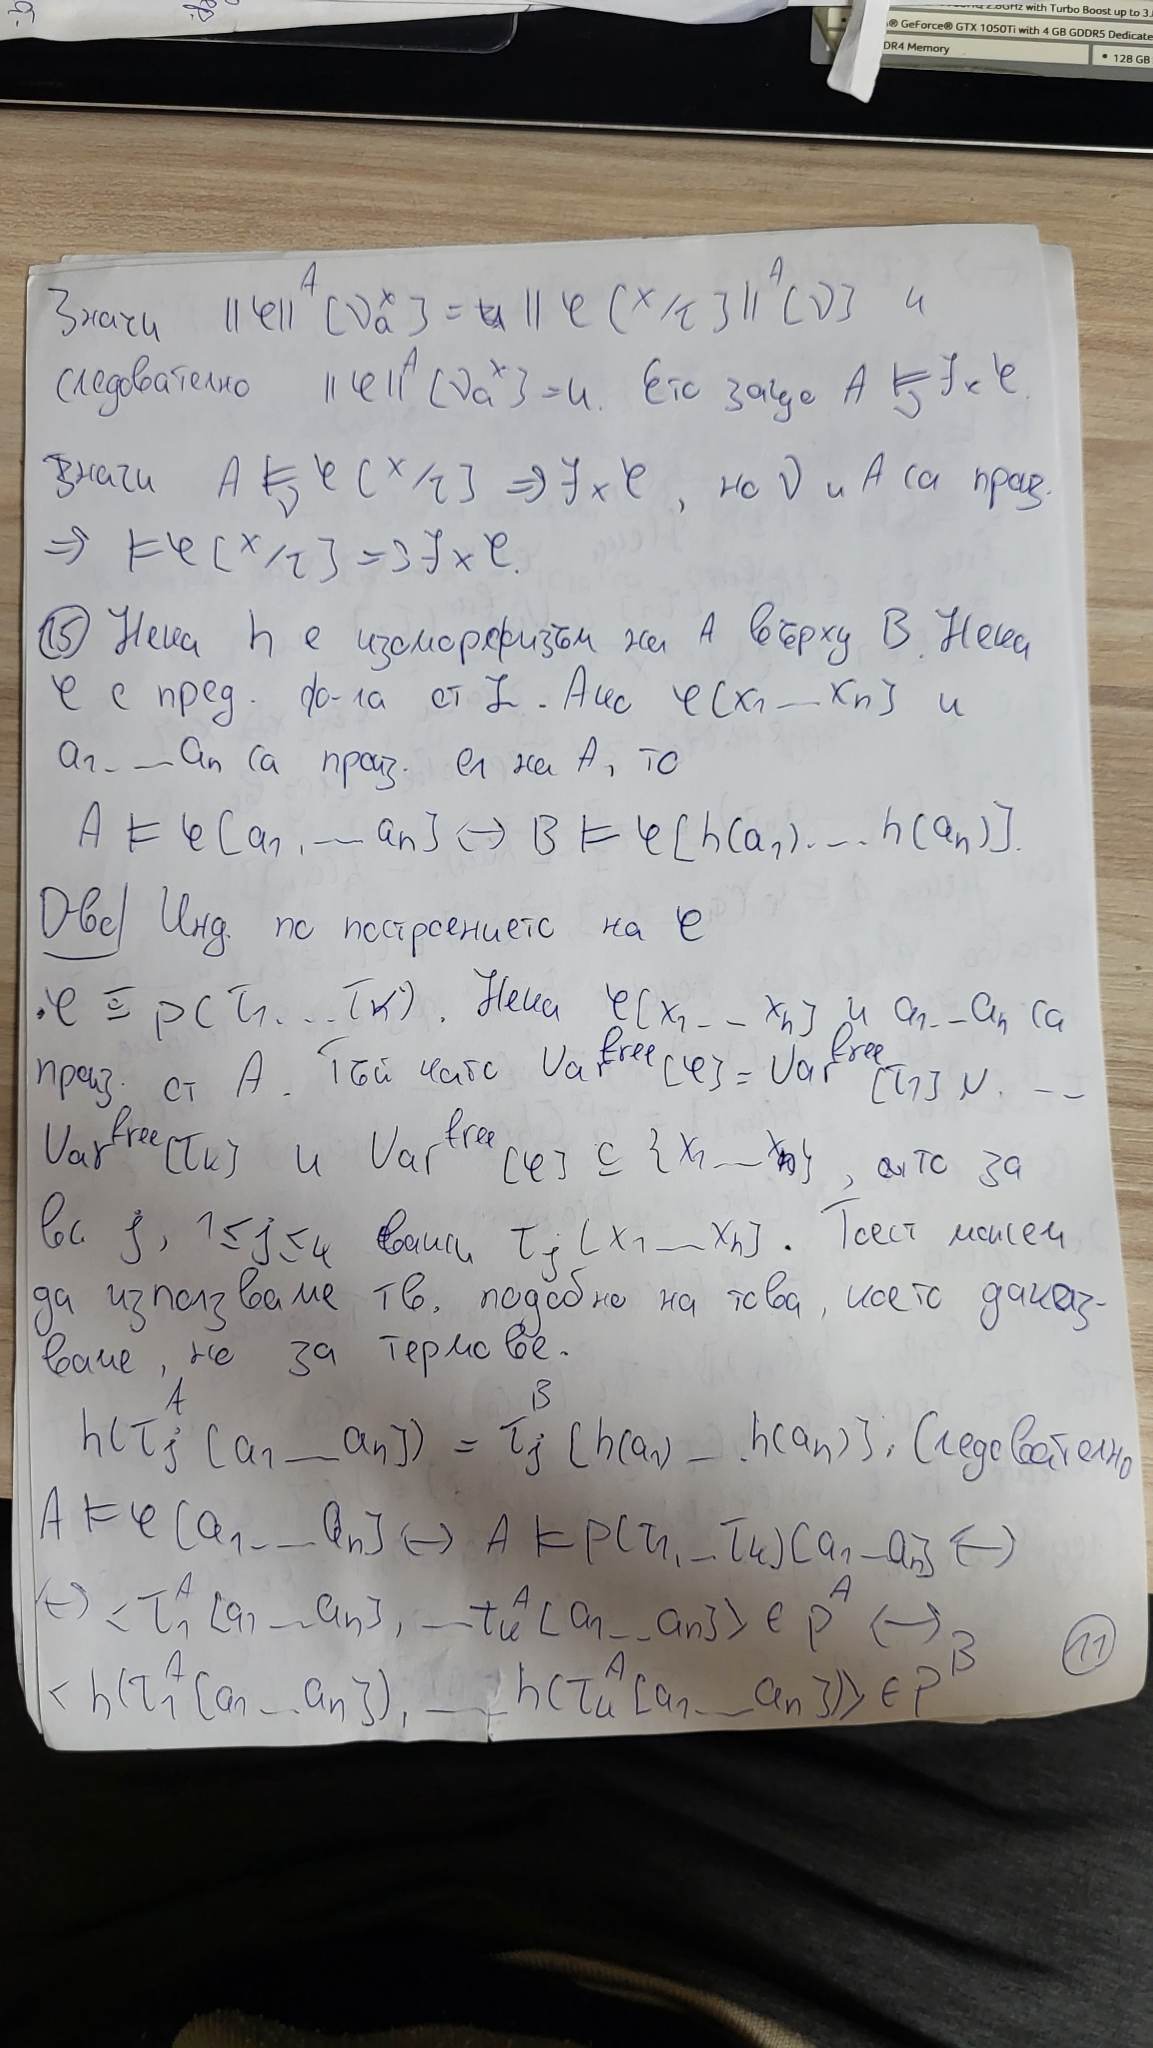 2.8GHz with Turbo Boost up to 3.
® GeForce® GTX 1050Ti with 4 GB GDDR5 Dedicate
DR4 Memory
• 128 GB
Значи ||φ||^A [ν^x_a] = ||φ[x/τ]||^A [ν] и
следователно ||φ||^A [ν^x_a] = и. Ето защо A ⊨_ν ∃xφ.
Значи A ⊨_ν φ[x/τ] ⇒ ∃xφ, но ν и A са произ.
⇒ ⊨ φ[x/τ] ⇒ ∃xφ.
(15) Нека h е изоморфизъм на A върху B. Нека
φ е пред. ф-ла от L. Ако φ[x1 ... xn] и
a1 ... an са произ. ел на A, то
A ⊨ φ[a1, ... an] ↔ B ⊨ φ[h(a1) ... h(an)].
Д-во/ Инд. по построението на φ
· φ ≡ p(τ1 ... τk). Нека φ[x1 ... xn] и a1 ... an са
произ. от A. Тъй като Var^free[φ] = Var^free[τ1] ∪ ...
Var^free[τk] и Var^free[φ] ⊆ {x1 ... xn}, то за
вс j, 1≤j≤k τj[x1 ... xn]. Тоест можем
да използваме тв. подобно на това, което доказ-
ваме, но за термове.
h(τj^A [a1 ... an]) = τj^B [h(a1) ... h(an)]. Следователно
A ⊨ φ[a1 ... an] ↔ A ⊨ p(τ1, ... τk)[a1 ... an] ↔
↔ <τ1^A [a1 ... an], ... τk^A [a1 ... an]> ∈ p^A ↔
<h(τ1^A [a1 ... an]), ... h(τk^A [a1 ... an])> ∈ p^B
(11)